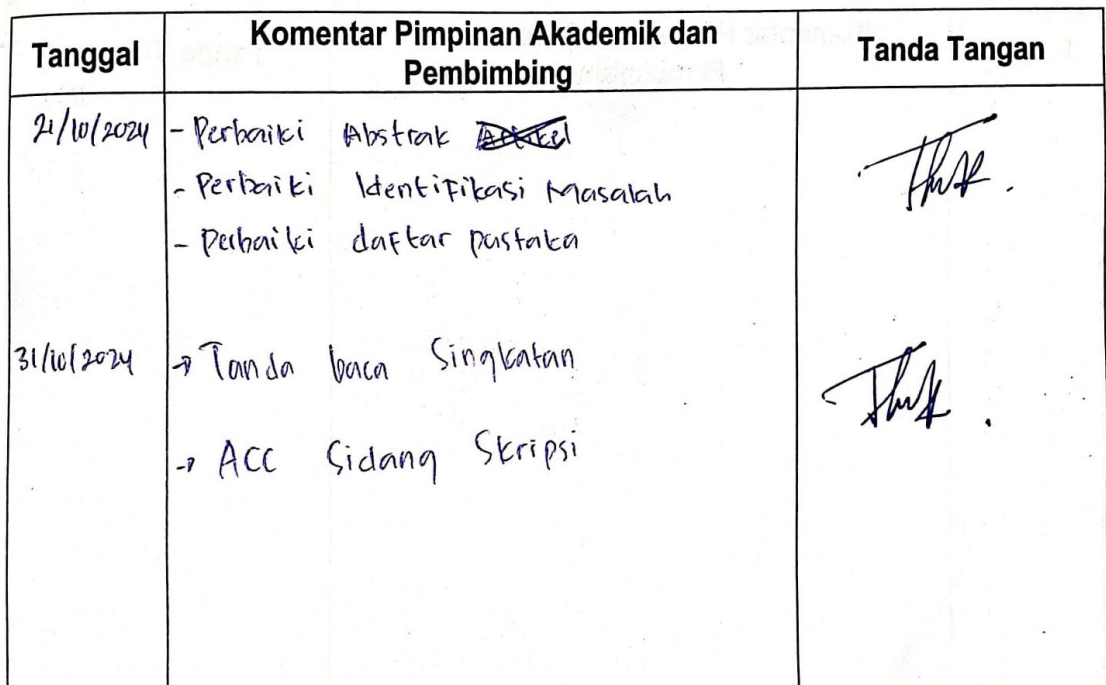 Tanggal
Komentar Pimpinan Akademik dan
Pembimbing
Tanda Tangan
21/10/2024 - Perbaiki Abstrak
- Perbaiki Identifikasi Masalah
- Perbaiki daftar pustaka
31/10/2024 → Tanda baca Singkatan
→ ACC Sidang Skripsi